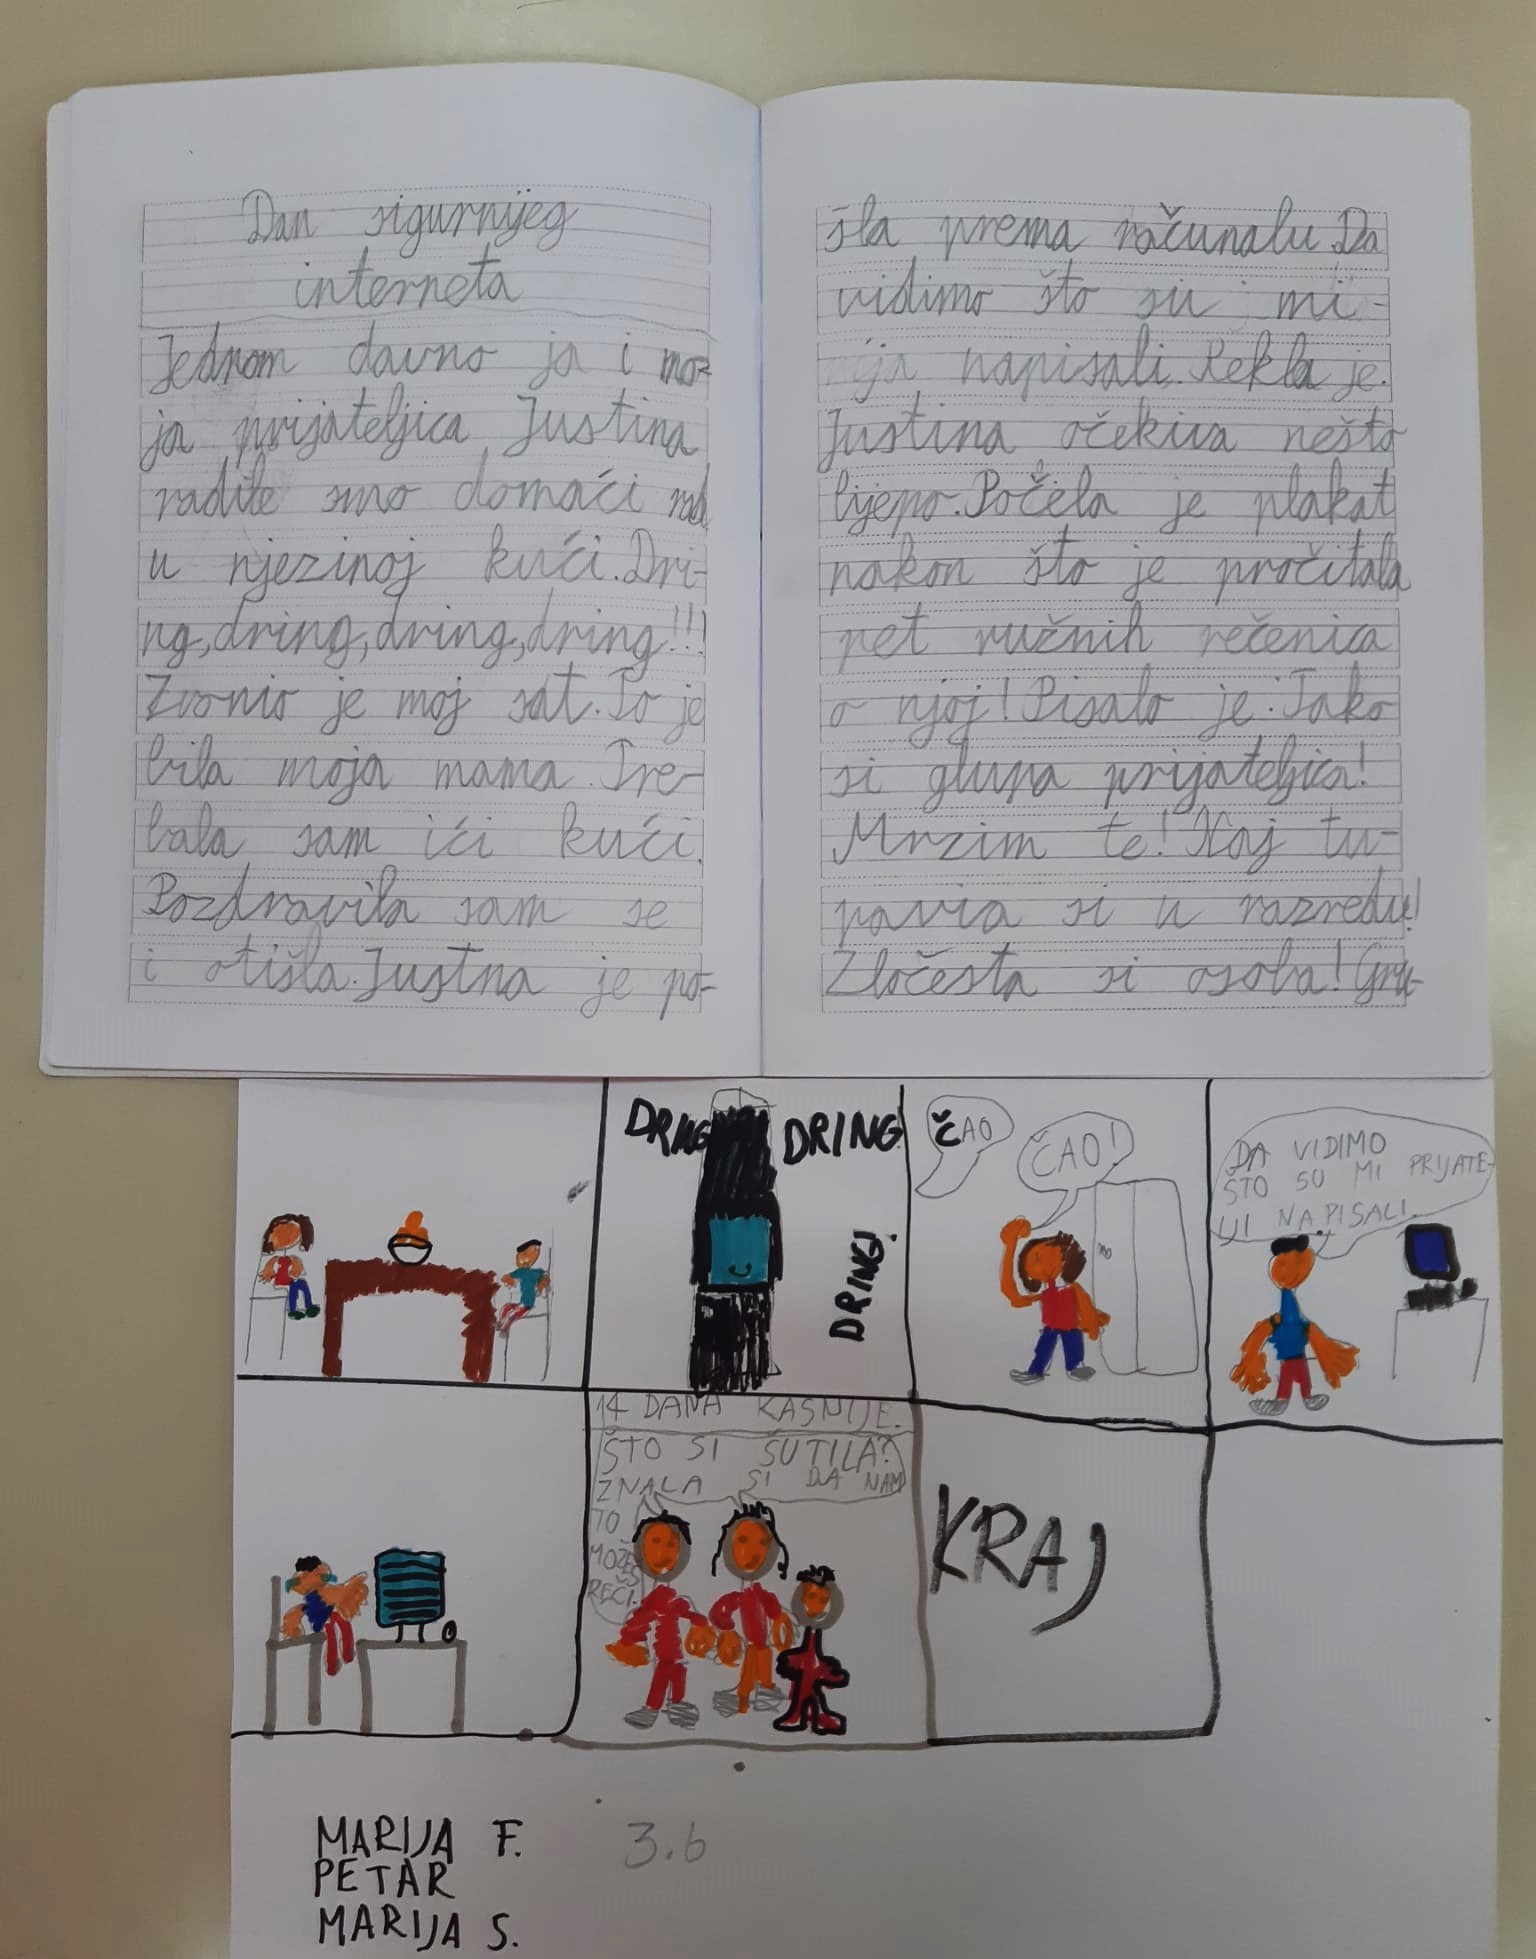 Dan sigurnijeg
interneta
Jednom davno ja i mo-
ja prijateljica Justina
radile smo domaći rad
u njezinoj kući. Dri-
ng,dring,dring,dring!!!
Zvonio je moj sat. To je
bila moja mama. Tre-
bala sam ići kući.
Pozdravila sam se
i otišla. Justna je po-
šla prema računalu. Da
vidimo što su mi-
napisali. Rekla je.
Justina očekiva nešto
lijepo. Počela je plakat
nakon što je pročitala
pet ružnih rečenica
o njoj! Pisalo je. Tako
si glupa prijateljica!
Mrzim te! Naj tu-
pavia si u razredu!
Zločesta si osoba! Gru-
DRING DRING!
DRING!
ČAO
ČAO!
DA VIDIMO
ŠTO SU MI PRIJATE-
LJI NAPISALI.
14 DANA KASNIJE.
ŠTO SI ŠUTILA?
ZNALA SI DA NAM
TO
MOŽEŠ
REĆI.
KRAJ
MARIJA F. 3.b
PETAR
MARIJA S.